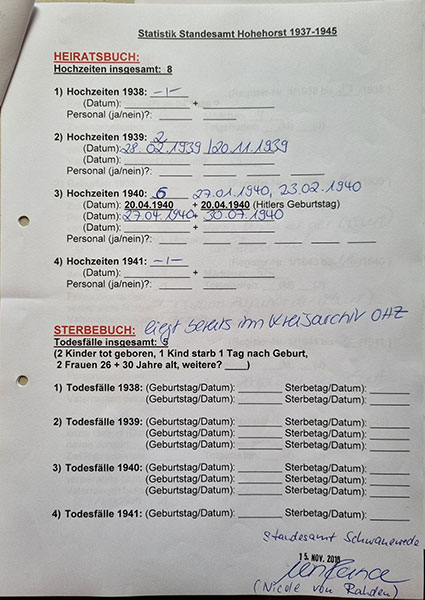 Statistik Standesamt Hohehorst 1937-1945
HEIRATSBUCH:
Hochzeiten insgesamt: 8
1) Hochzeiten 1938: -1-
(Datum): ______ + ______
Personal (ja/nein)?: ______ ______
2) Hochzeiten 1939: 2
(Datum): 28.02.1939 / 20.11.1939
(Datum): ______ + ______
Personal (ja/nein)?: ______ ______
3) Hochzeiten 1940: 6 27.01.1940, 23.02.1940
(Datum): 20.04.1940 + 20.04.1940 (Hitlers Geburtstag)
(Datum): 27.04.1940 + 30.07.1940
Personal (ja/nein)?: ______ ______ ______ ______ ______ ______
4) Hochzeiten 1941: -1-
(Datum): ______ + ______
Personal (ja/nein)?: ______ ______
STERBEBUCH: liegt bereits im Kreisarchiv OHZ
Todesfälle insgesamt: 5
(2 Kinder tot geboren, 1 Kind starb 1 Tag nach Geburt,
2 Frauen 26 + 30 Jahre alt, weitere? ____)
1) Todesfälle 1938: (Geburtstag/Datum): ______ Sterbetag/Datum): ______
(Geburtstag/Datum): ______ Sterbetag/Datum): ______
2) Todesfälle 1939: (Geburtstag/Datum): ______ Sterbetag/Datum): ______
(Geburtstag/Datum): ______ Sterbetag/Datum): ______
(Geburtstag/Datum): ______ Sterbetag/Datum): ______
3) Todesfälle 1940: (Geburtstag/Datum): ______ Sterbetag/Datum): ______
(Geburtstag/Datum): ______ Sterbetag/Datum): ______
(Geburtstag/Datum): ______ Sterbetag/Datum): ______
4) Todesfälle 1941: (Geburtstag/Datum): ______ Sterbetag/Datum): ______
Standesamt Schwanewede
15. NOV. 2018
(Nicole von Rahden)